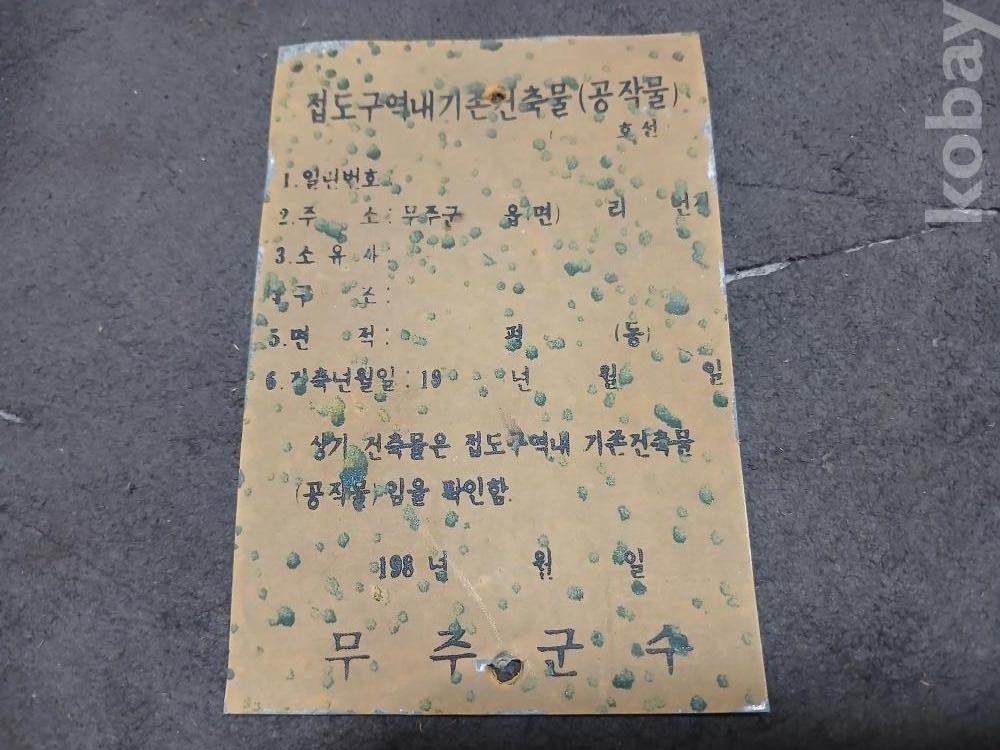 접도구역내기존건축물(공작물)
( 호선
1. 일련번호 :
2. 주 소 : 무주군 읍(면) 리 번지
3. 소 유 자 :
4. 구 조 :
5. 면 적 : 평 (동)
6. 건축년월일 : 19 년 월 일
상기 건축물은 접도구역내 기존건축물
(공작물)임을 확인함.
198 년 월 일
무 주 군 수
kobay